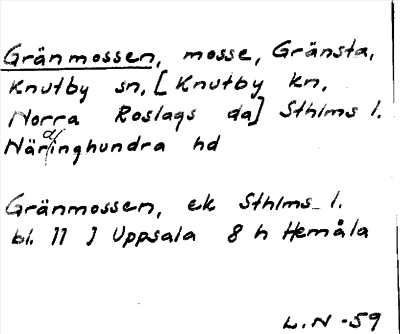 Gränmossen, mosse, Gränsta,
Knutby sn, [Knutby kn,
Norra Roslags da] Sthlms l.
Närdinghundra hd
Gränmossen, ek Sthlms l.
bl. 11 J Uppsala 8 h Hemåla
L.N -59